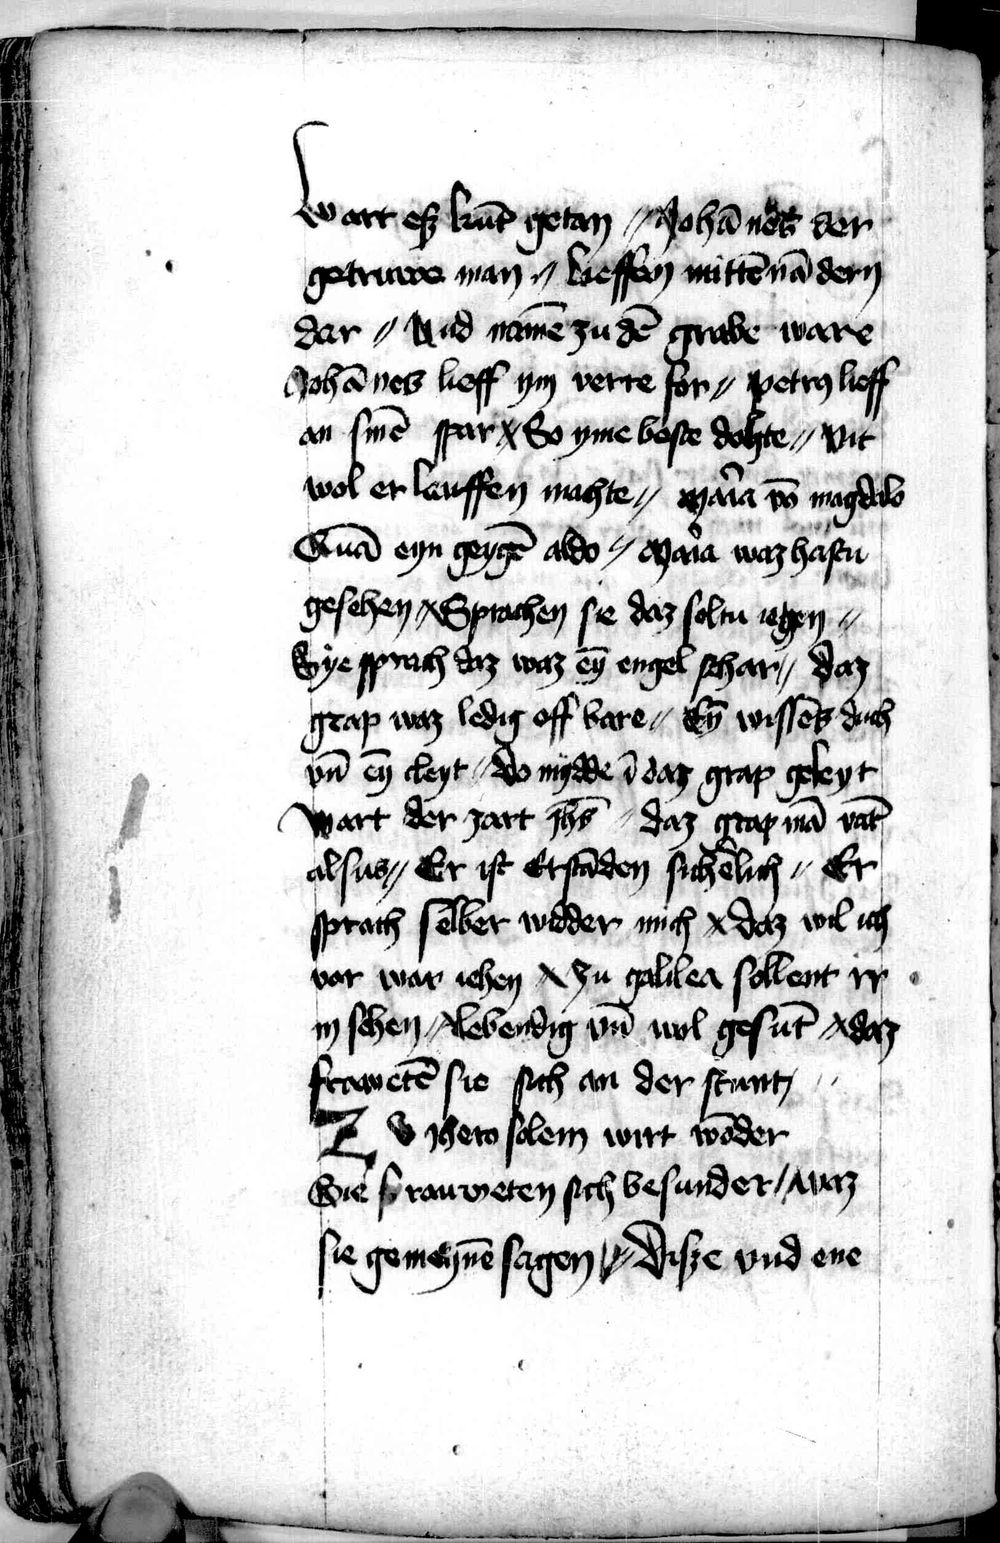 Wart esz kūt getan // Johānes der
getruwe man // lieffen mittēnādern
dar // Und namē zu dē grabe ware
Johānes lieff ym verre for // petrꝯ lieff
an sinē spar X So yme beste dohte // Nit
wol er lauffen mahte // Maria vō magdalo
Quā eyn geygē aldo // Maria waz hastu
gesehen X Sprachen sie daz soltu iehen //
Sye sprach daz waz eȳ engel schar // daz
grap waz ledig off bare // Eȳ wisses duch
vn̄ eȳ cleyt // Do mydde ī daz grap geleyt
Wart der zart jhs̄ // daz grap mā vāt
alsus // Er ist Erstāden sicherlich // Er
sprach selber widder mich X daz wil ich
vor war iehen X Zu galilea sollent ir
in sehen // lebendig vn̄ wol gesūt X daz
frawetē sie sich an der stunt //
Zv jherosolem wirt wōder
Sie frauweten sich besunder / waz
sie gemeynē sagen // Disze vnd ene